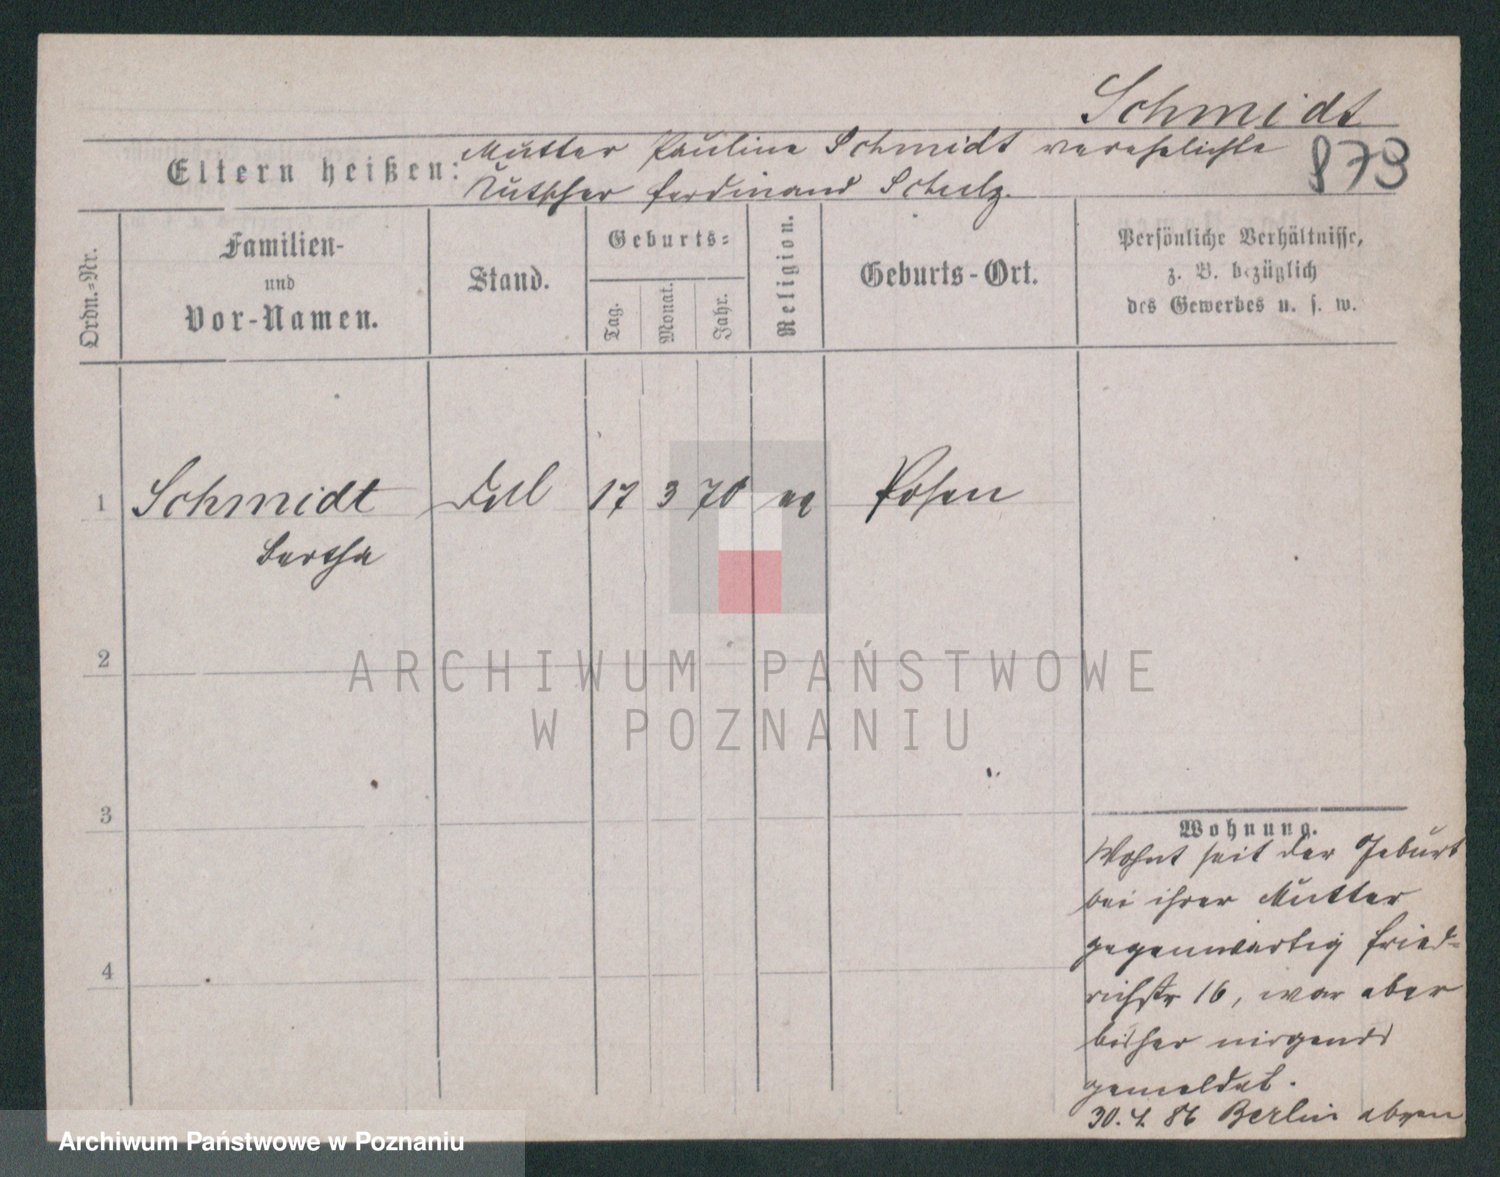 Schmidt
873
Eltern heißen: Mutter Pauline Schmidt verehelichte
Kutscher Ferdinand Schulz.
Ordn.-Nr.
Familien-
und
Vor-Namen.
Stand.
Geburts-
Tag.
Monat.
Jahr.
Religion.
Geburts-Ort.
Persönliche Verhältnisse,
z. B. bezüglich
des Gewerbes u. s. w.
1 Schmidt 17 3 70 Posen
Bertha
2
3
4
Wohnung.
Wohnt seit der Geburt
bei ihrer Mutter
gegenwärtig Fried-
richstr 16, war aber
bisher nirgends
gemeldet.
30. 4. 86 Berlin abgem
ARCHIWUM PAŃSTWOWE
W POZNANIU
Archiwum Państwowe w Poznaniu